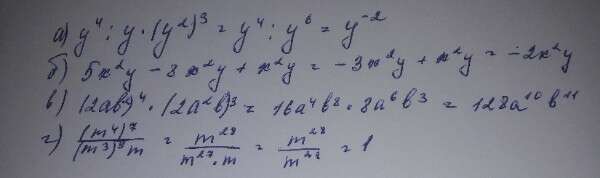 а) y⁴ : y · (y²)³ = y⁴ : y⁶ = y⁻²
б) 5x²y - 8x²y + x²y = -3x²y + x²y = -2x²y
в) (2ab²)⁴ · (2a²b)³ = 16a⁴b⁸ · 8a⁶b³ = 128a¹⁰b¹¹
г) (m⁴)⁷/(m³)⁹m = m²⁸/m²⁷·m = m²⁸/m²⁸ = 1